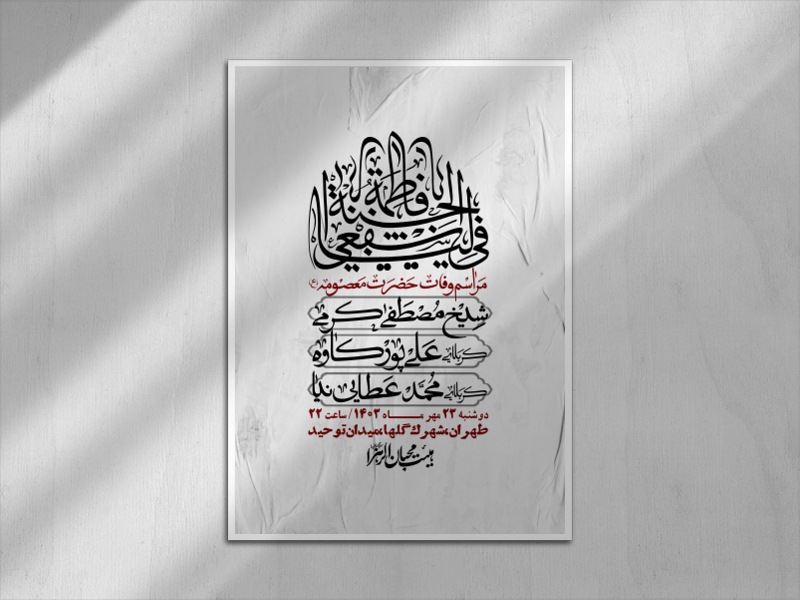 یا فاطمة
اشفعی لی فی الجنة
مراسم وفات حضرت معصومه (س)
شیخ مصطفی کرمی
کربلایی علی پورکاوه
کربلایی محمد عطایی نیا
دوشنبه ۲۳ مهر مــاه ۱۴۰۳ / ساعت ۲۲
طهران، شهرك گلها، میدان توحید
هیئت محبان الزهرا